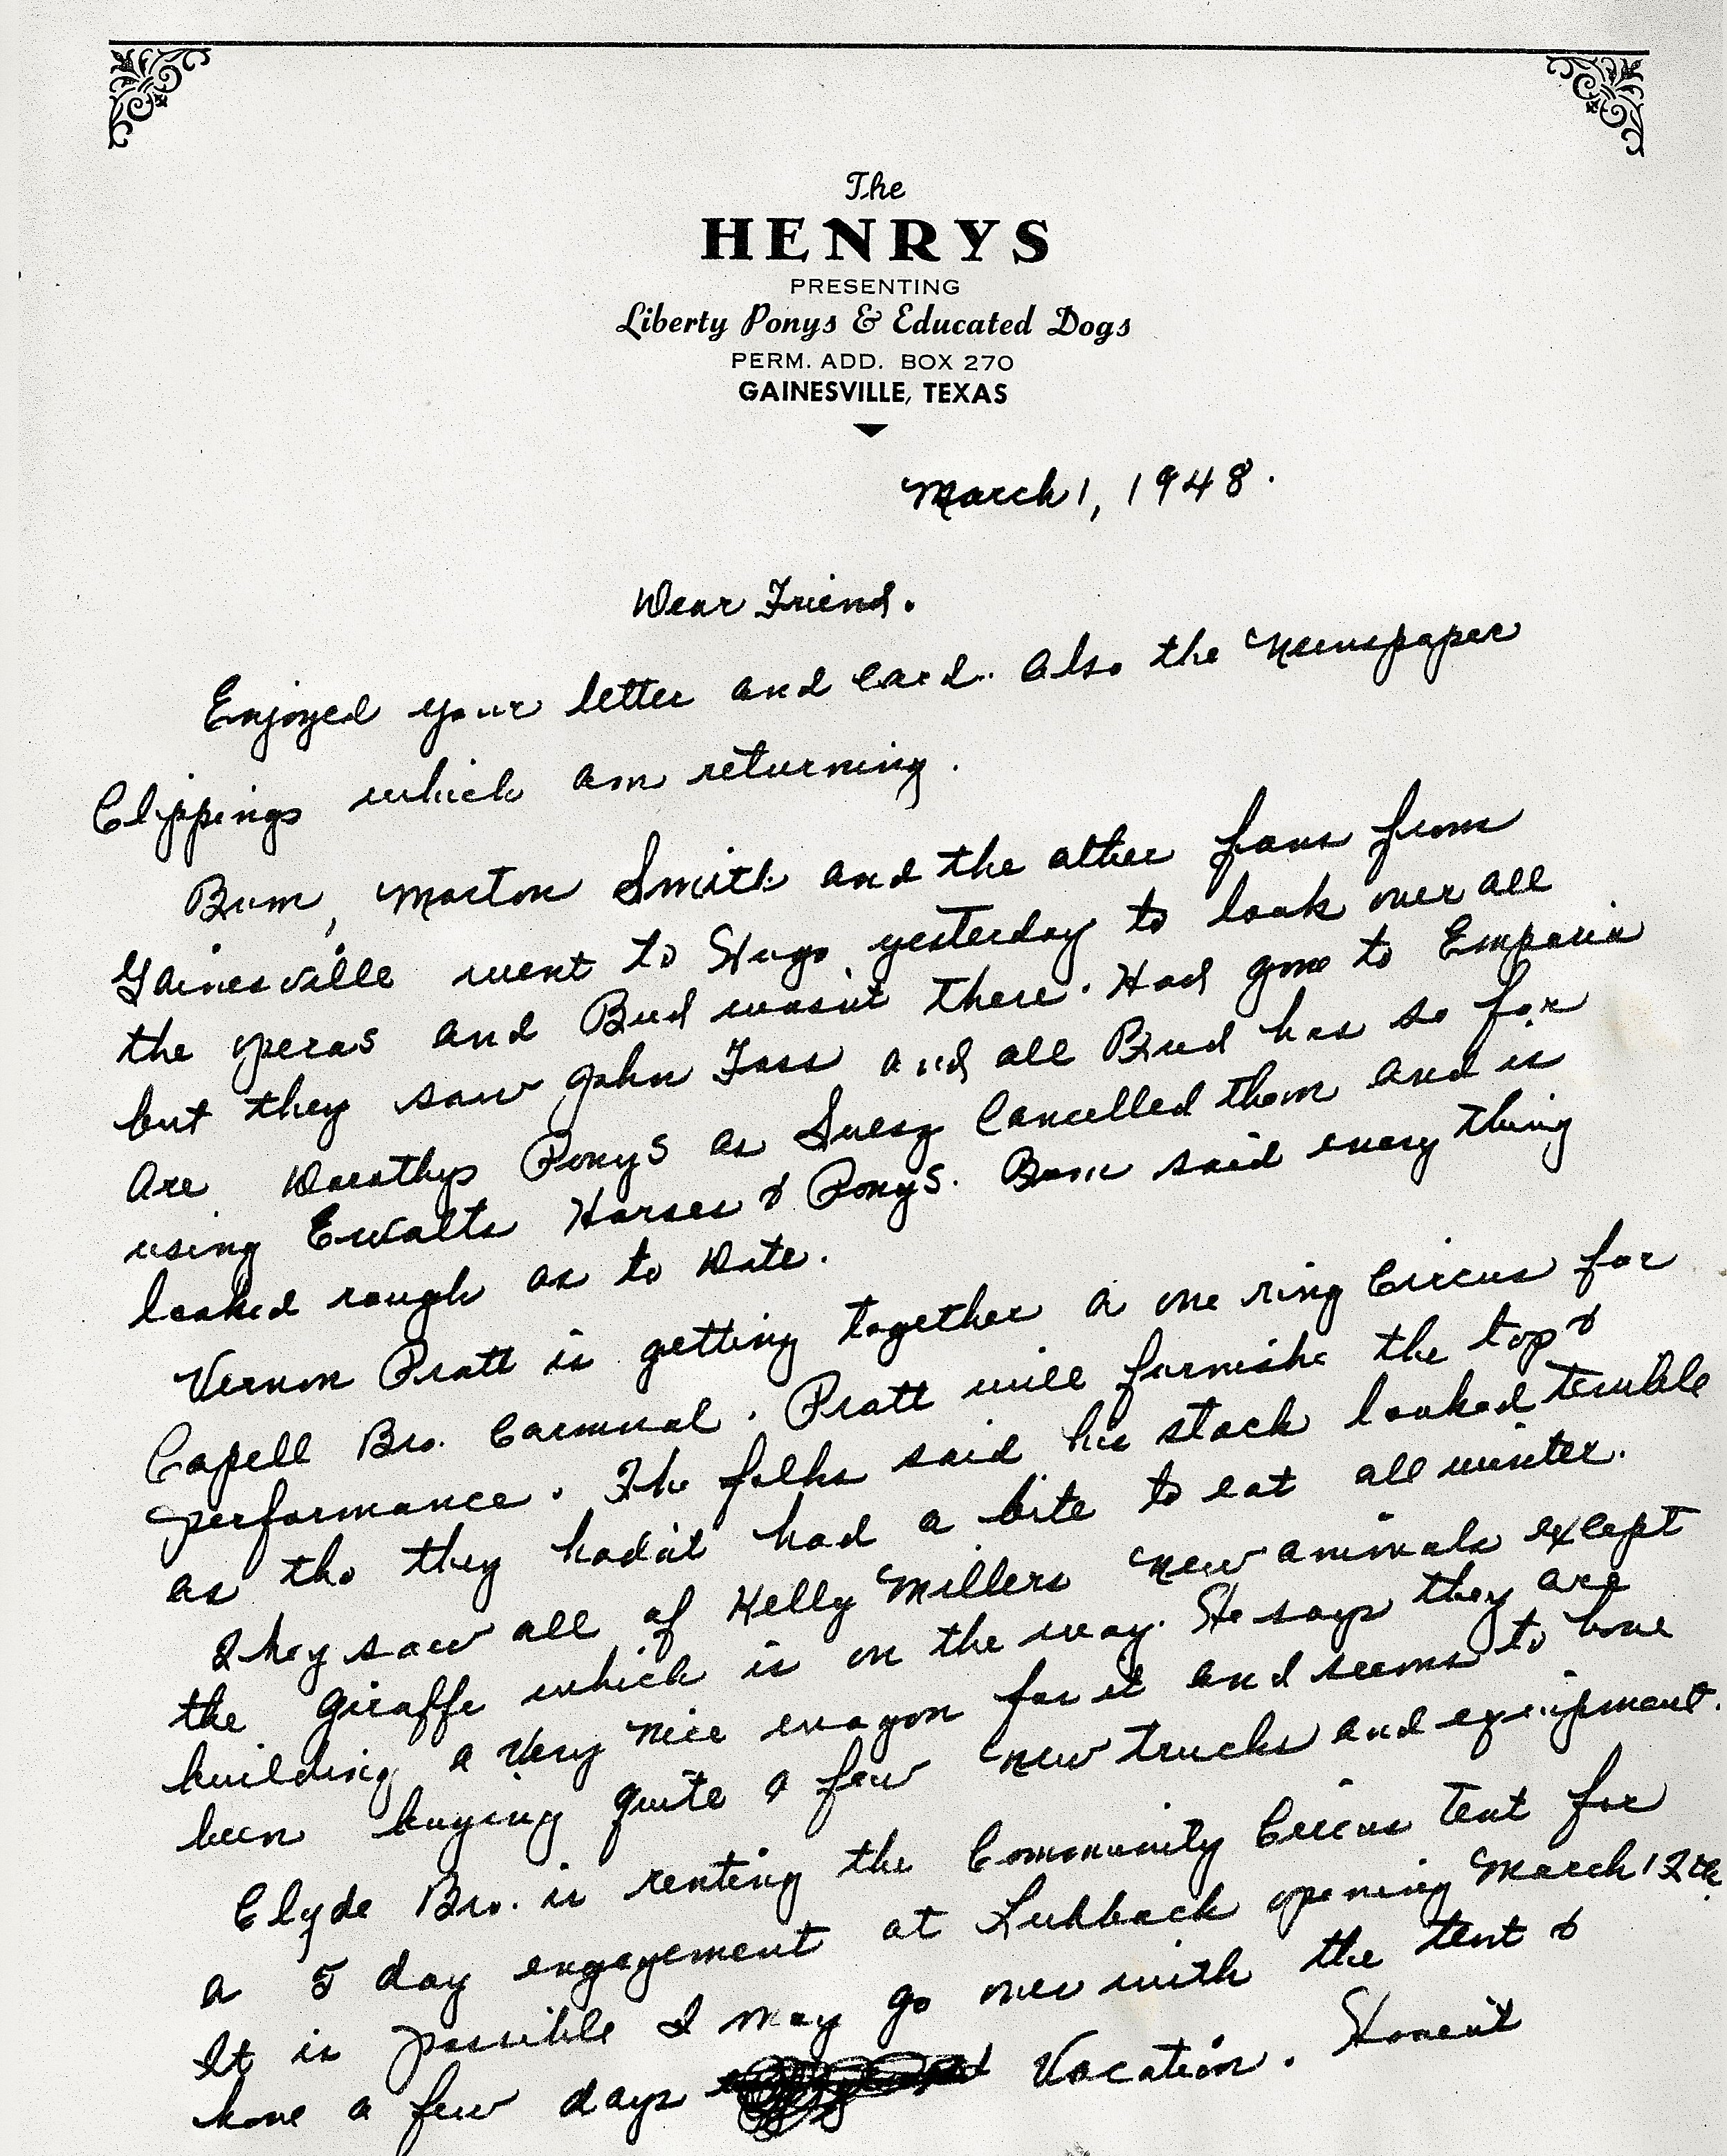 The
HENRYS
PRESENTING
Liberty Ponys & Educated Dogs
PERM. ADD. BOX 270
GAINESVILLE, TEXAS
March 1, 1948.
Dear Friend.
Enjoyed your letter and card. Also the Newspaper
Clippings which am returning.
Bum, Morton Smith and the other fans from
Gainesville went to Hugo yesterday to look over all
the operas and Bud wasn't there. Had gone to Emporia
but they saw John Foss and all Bud has so far
are Dorothys Ponys as Suesz Cancelled them and is
using Ewalts Horses & Ponys. Bum said every thing
looked rough as to Date.
Vernon Pratt is getting together a one ring Circus for
Capell Bro. Carnival. Pratt will furnish the top &
performance. The folks said his stock looked terrible
as tho they hadn't had a bite to eat all winter.
They saw all of Kelly Millers New animals except
the Giraffe which is on the way. He says they are
building a Very Nice wagon for it and seems to have
been buying quite a few New trucks and equipment.
Clyde Bro. is renting the Community Circus Tent for
a 5 day engagement at Lubbock opening March 12th.
It is possible I may go over with the tent &
have a few days Vacation. Haven't